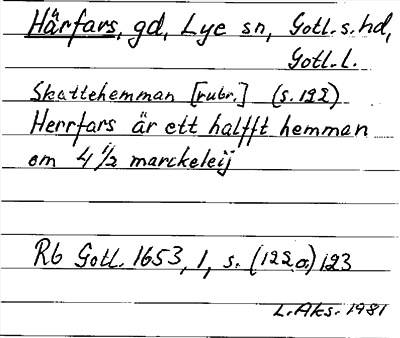 Härfars, gd, Lye sn, Gotl. s. hd,
Gotl. l.
Skattehemman [rubr.] (s. 122)
Herrfars är ett halfft hemman
om 4 1/2 marckeleij
Rb Gotl. 1653, 1, s. (122 a) 123
L. Aks. 1981